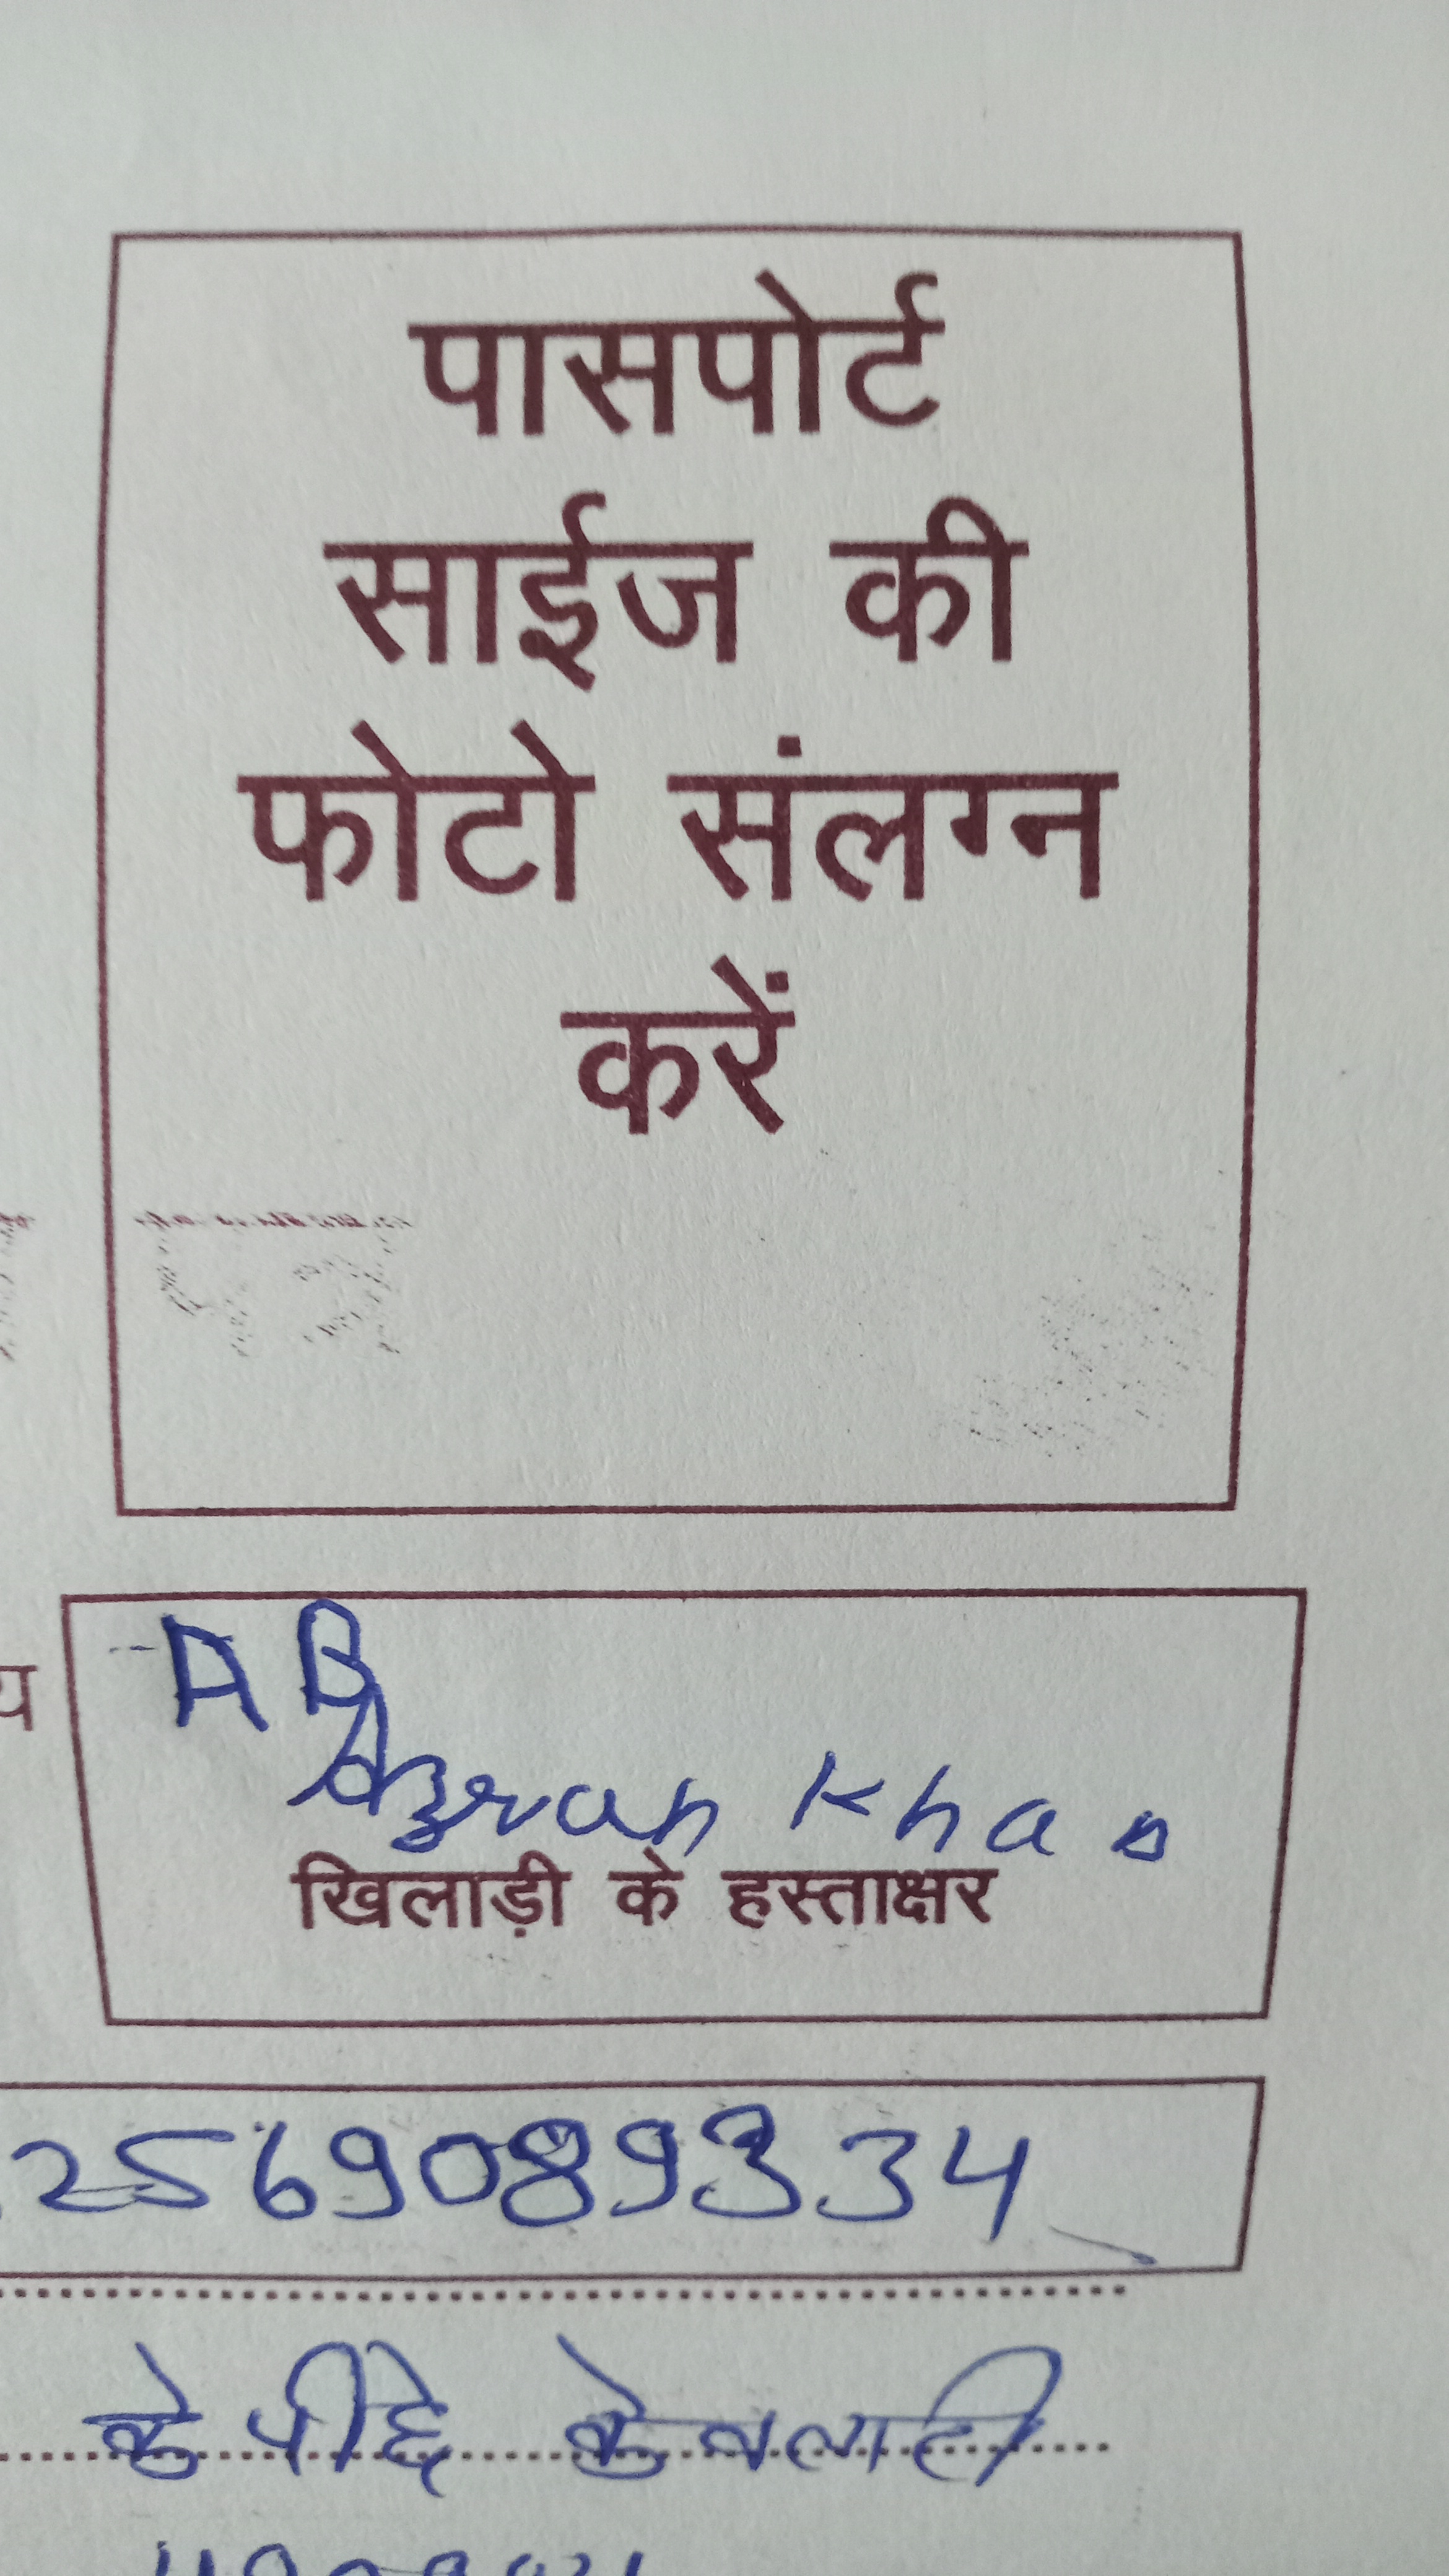 पासपोर्ट
साईज की
फोटो संलग्न
करें
य
AB
Abzran Khan
खिलाड़ी के हस्ताक्षर
2569089334
के पीछे केवलारी